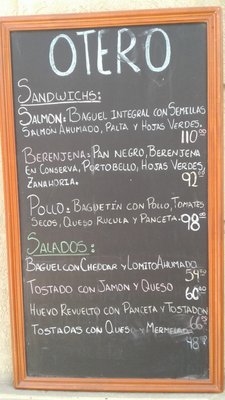 OTERO
SANDWICHS:
SALMON: BAGUEL INTEGRAL CON SEMILLAS
SALMON AHUMADO, PALTA Y HOJAS VERDES.
110
BERENJENA: PAN NEGRO, BERENJENA
EN CONSERVA, PORTOBELLO, HOJAS VERDES,
ZANAHORIA. 92
POLLO: BAGUETÍN CON POLLO, TOMATES
SECOS, QUESO RUCULA Y PANCETA. 98
SALADOS:
BAGUEL CON CHEDDAR Y LOMITO AHUMADO
54
TOSTADO CON JAMON Y QUESO 60
HUEVO REVUELTO CON PANCETA Y TOSTADON
66
TOSTADAS CON QUESO Y MERMELADA
48